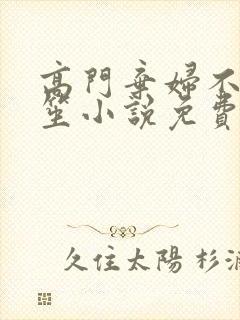 高門棄婦不
笙小說免費
久住太陽 杉浦